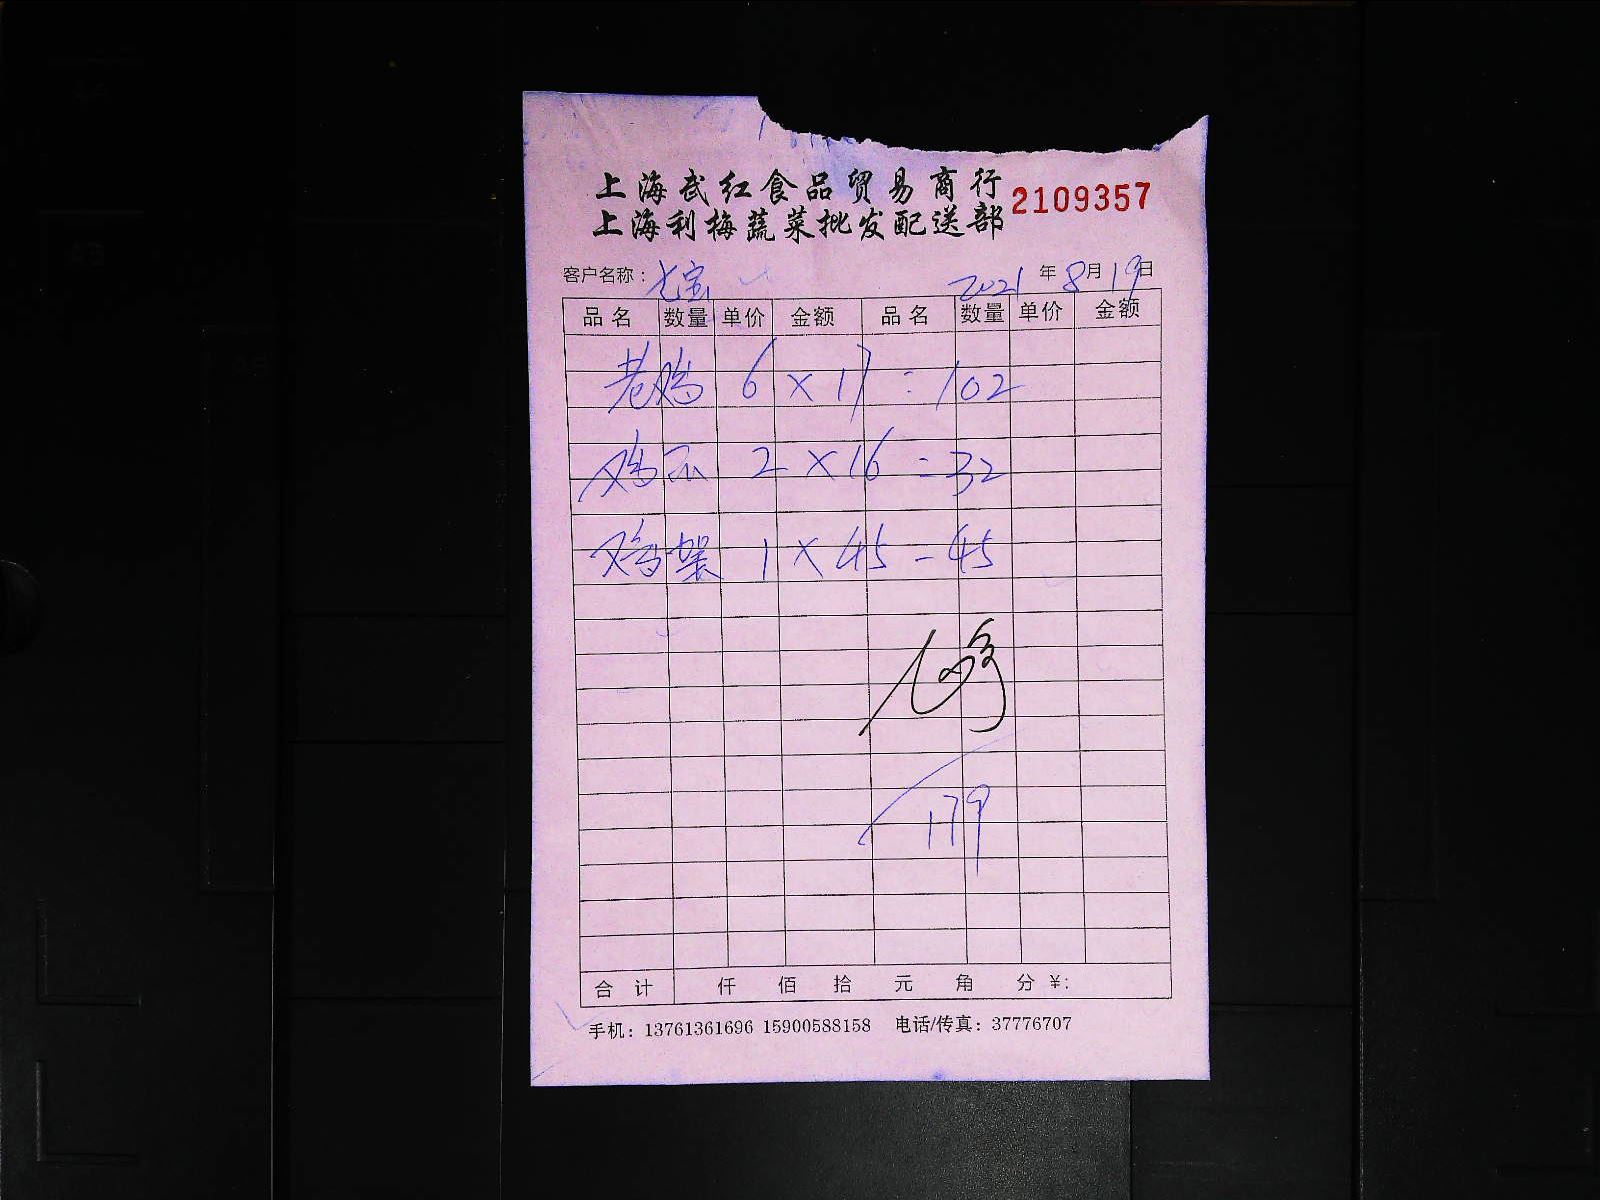 上海武红食品贸易商行
上海利梅蔬菜批发配送部
2109357
客户名称：七宝 2021年8月19日
品名 数量 单价 金额 品名 数量 单价 金额
老鸡 6×17=102
鸡爪 2×16=32
鸡架 1×45=45
179
合计 仟 佰 拾 元 角 分 ¥:
手机：13761361696 15900588158 电话/传真：37776707